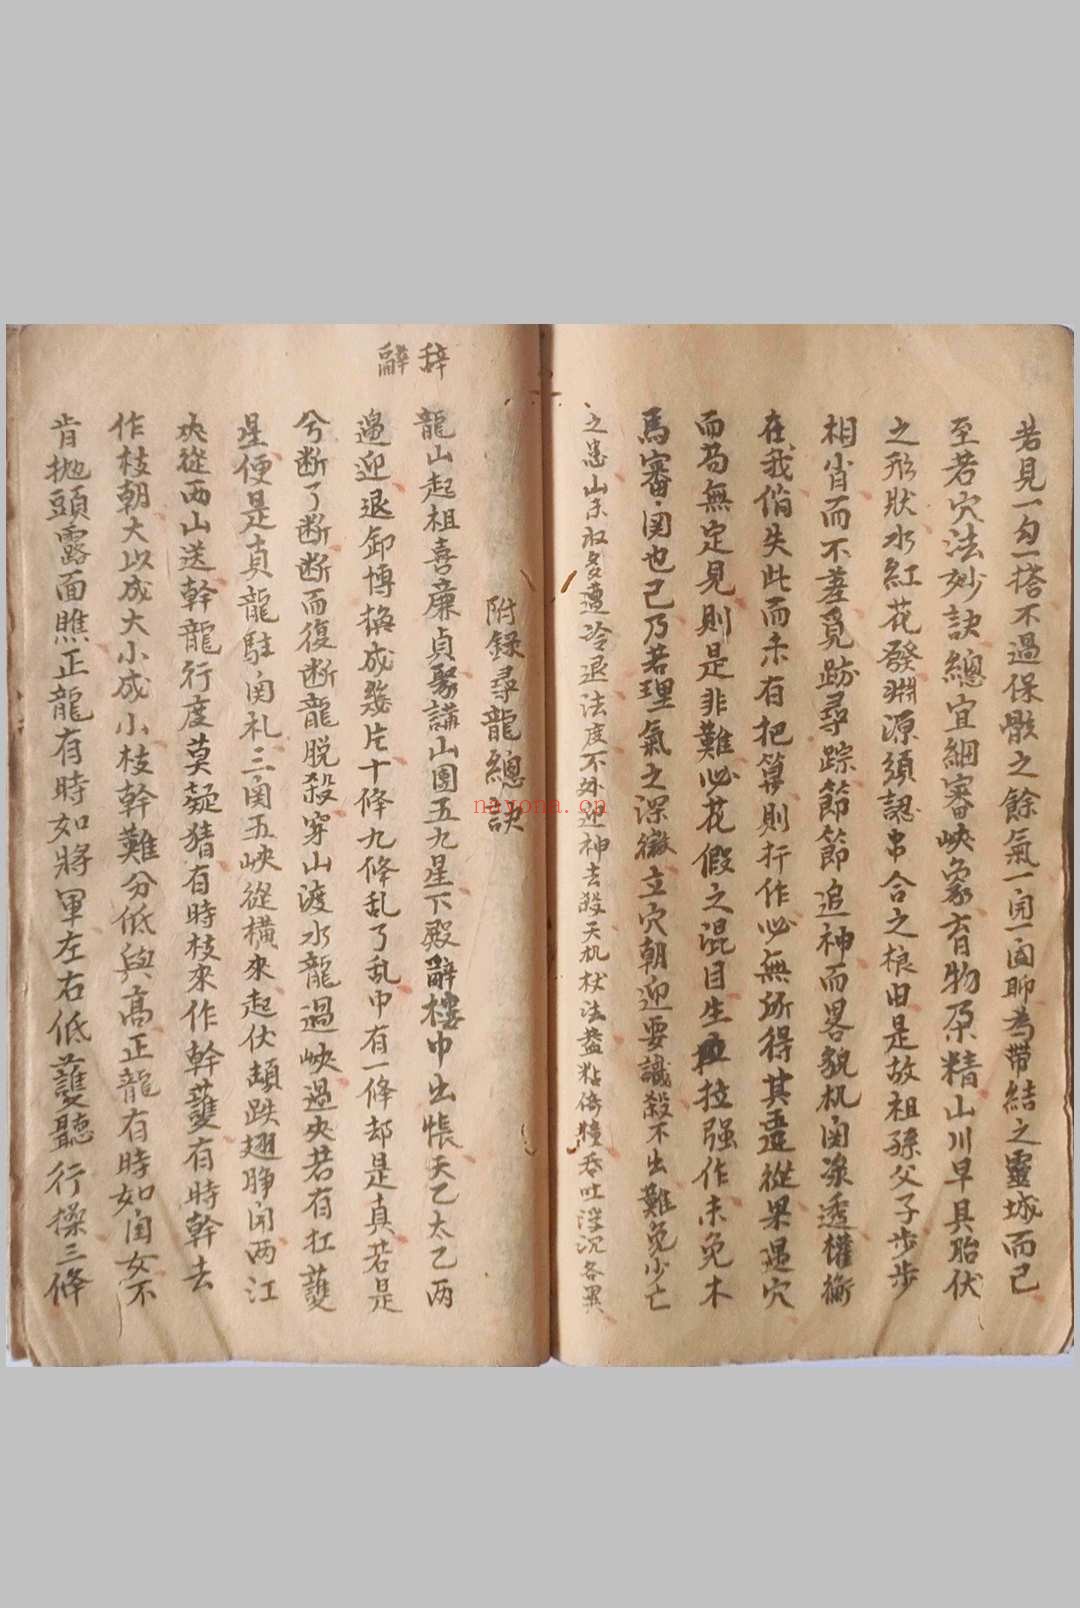 若見一勾一搭不過保骸之餘氣一完一固聊為帶結之靈城而已
至若穴法妙訣總宜細審峽象育物孕精山川早具胎伏
之形狀水紅花發淵源須認串合之根由是故祖孫父子步步
相肖而不差覓跡尋踪節節追神而畧貌机関滲透權衡
在我俏失此而未有把算則扦作必無所得其歪從果遇穴
而茍無定見則是非難必花假之混目生拉强作未免木
馬審関也已乃若理氣之深微立穴朝迎要識殺不出難免少亡
之患山家収多遭冷退法度不外迎神去殺天机杖法盖粘倚撞吞吐浮沉各異
附錄尋龍總訣
辭辞
龍山起祖喜廉貞聚講山團五九星下殿辭樓巾出悵天乙太乙两
邉迎退卸博換成幾片十條九條乱了乱巾有一條却是真若是
兮断了断断而復断龍脱殺穿山渡水龍過峽過夾若有扛護
星便是真龍駐関札三関五峽從橫來起伏頡跌翅睁開两江
夾從两山送幹龍行度莫疑猜有時枝來作幹護有時幹去
作枝朝大以成大小成小枝幹難分低與高正龍有時如閨女不
肯抛頭露面瞧正龍有時如將軍左右低護聽行操三條
nayona.cn